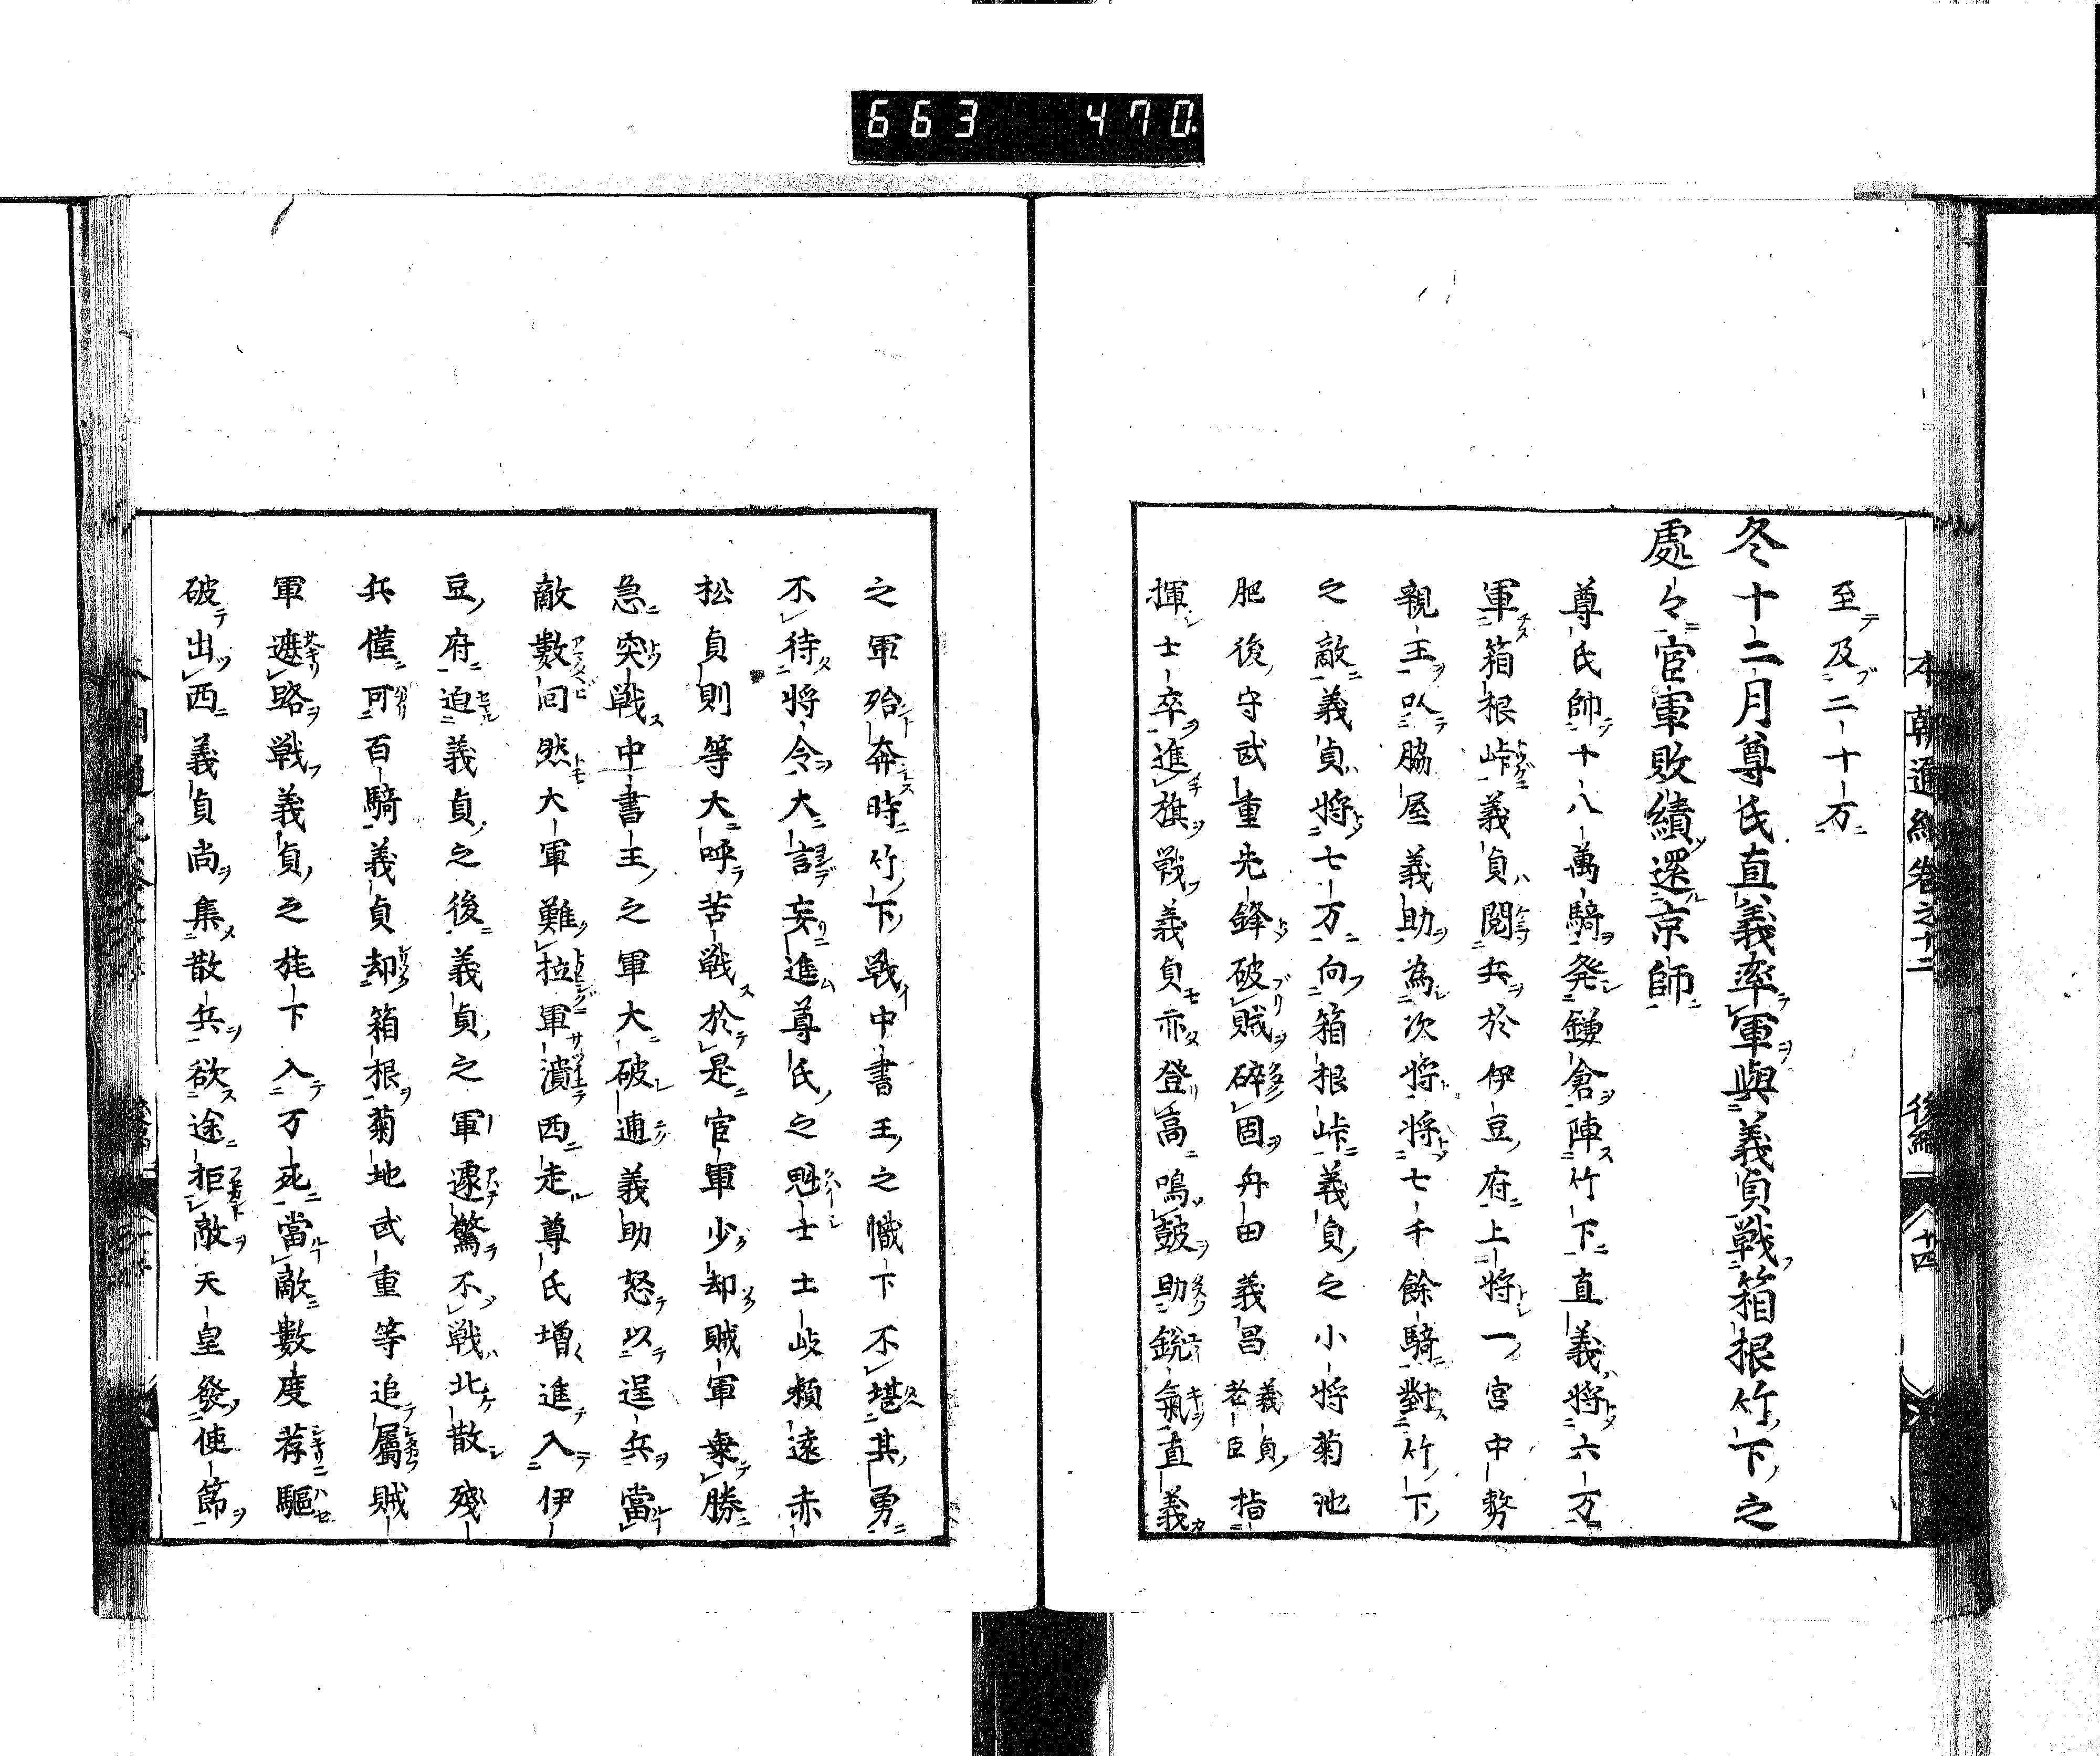 663 470
本朝通紀卷之十二 後編 十四
至及二十万
冬十二月尊氏直義率軍與義貞戦箱根竹下之
處々官軍敗績還京師
尊氏帥十八萬騎発鎌倉陣竹下直義将六万
軍箱根峠義貞閲兵於伊豆府上将一宮中務
親王以脇屋義助為次将将七千餘騎對竹下
之敵義貞将七万向箱根峠義貞之小将菊池
肥後守武重先鋒破賊碎固舟田義昌義貞老臣指
揮士卒進旗戦義貞亦登高鳴鼓助鋭氣直義
之軍殆奔時竹下戦中書王之幟下不堪其勇
不待将令大訇妄進尊氏之魁士土岐頼遠赤
松貞則等大呼苦戦於是官軍少却賊軍乗勝
急突戦中書王之軍大破連義助怒以逞兵當
敵數囘然大軍難拉軍潰西走尊氏増進入伊
豆府迫義貞之後義貞之軍遽驚不戦北散殘
兵僅可百騎義貞却箱根菊地武重等追屬賊
軍遮路戦義貞之旄下入万死當敵數度荐驅
破出西義貞尚集散兵欲途拒敵天皇發使節